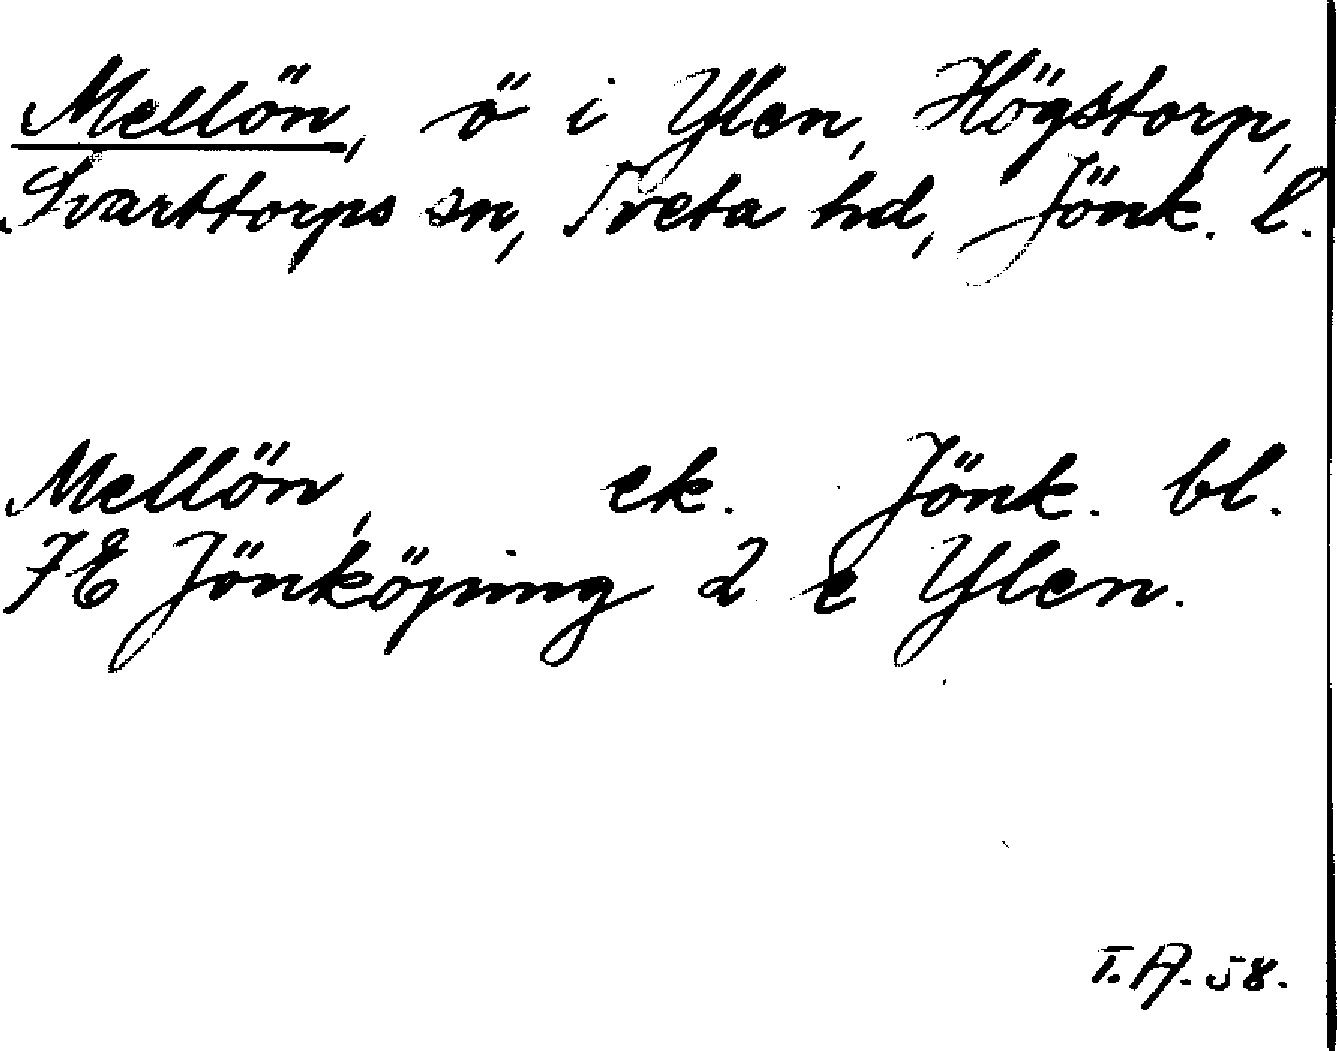 Mellön, ö i Ylen, Högstorp,
Svarttorps sn, Tveta hd, Jönk. l.
Mellön, ek. Jönk. bl.
7E Jönköping 2 e Ylen.
T.A. 58.